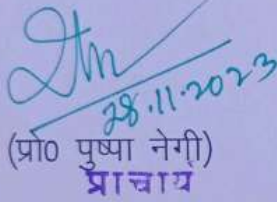 28.11.2023
(प्रो0 पुष्पा नेगी)
प्राचार्य